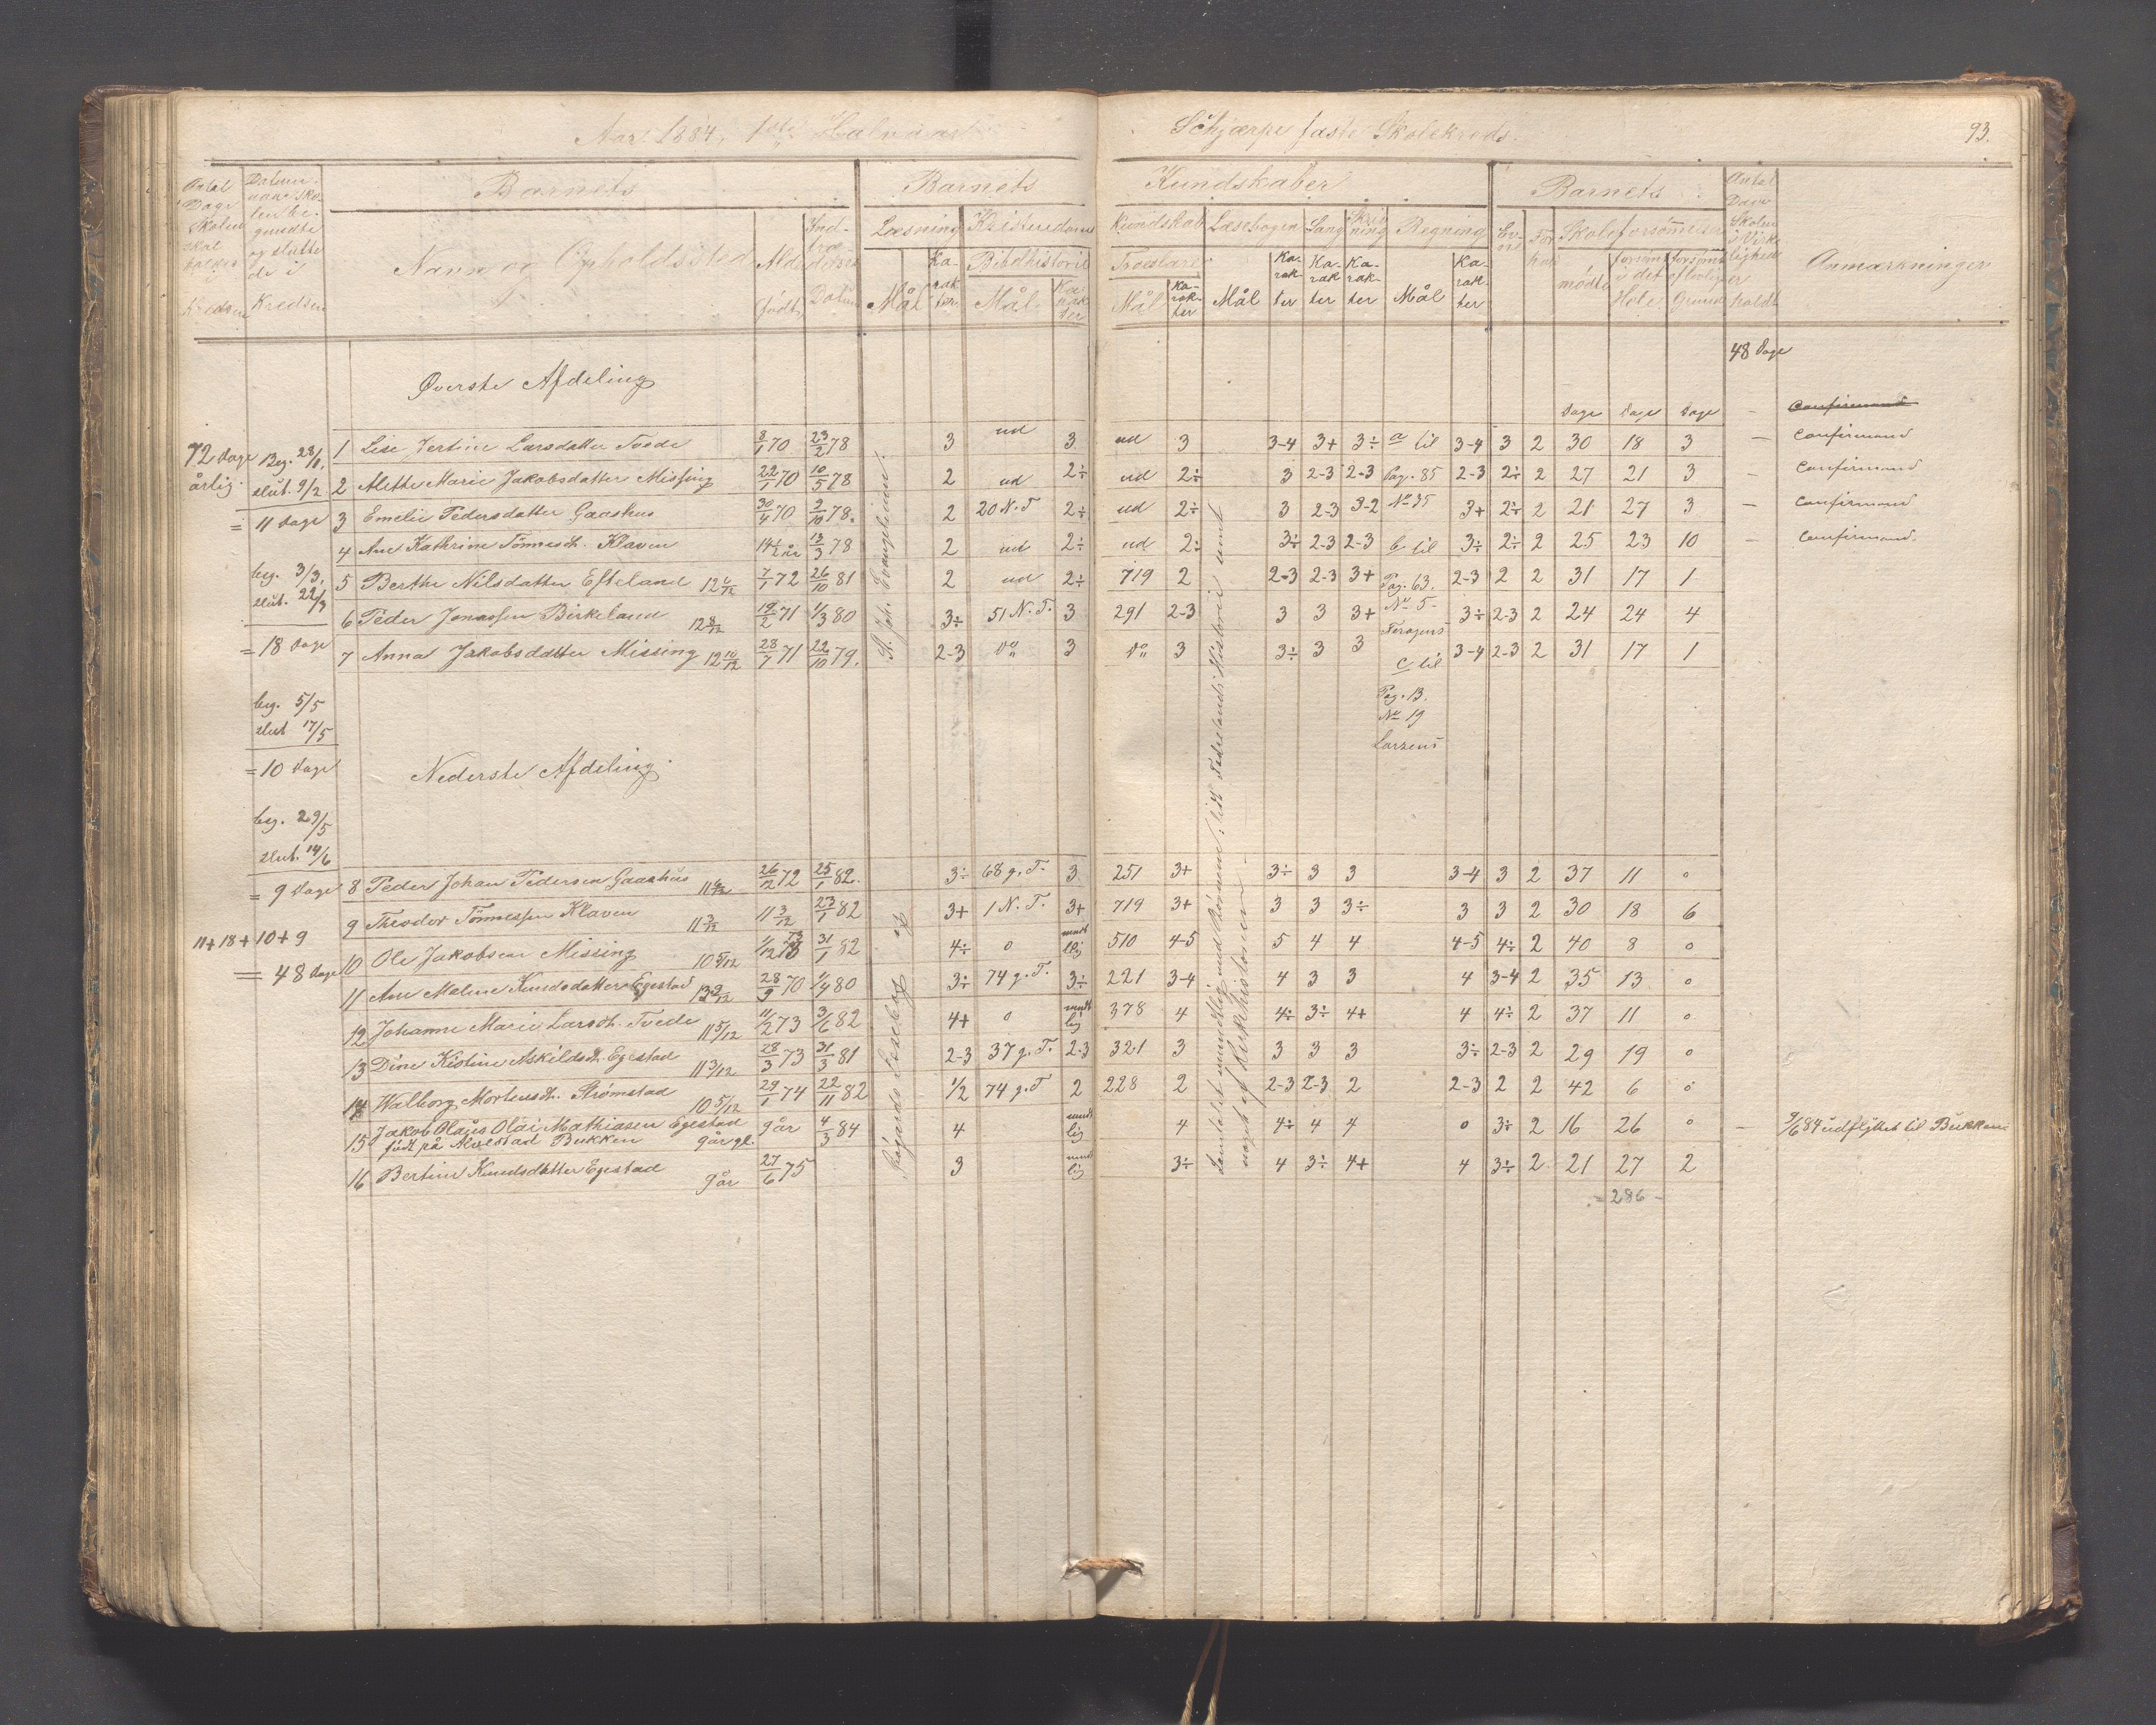 Aar 1884, 1ste Halvaar
Schjærpe faste Skolekreds.
93.
Antal Dage Skolen skal holdes i Kredsen
Datum naar Skolen begyndte og sluttede i Kredsen
Barnets
Navn og Opholdssted
Alder
født
Indtrædelses Datum
Barnets
Kundskaber
Læsning
Mål
Karakter
Kristendoms Kundskab
Bibelhistorie
Mål
Karakter
Troeslære
Mål
Karakter
Læsebogen
Mål
Karakter
Sang
Karakter
Skrivning
Karakter
Regning
Mål
Karakter
Barnets
Evne
Forhold
Skoleforsømmelser
mødte
forsømt i det Hele
forsømt af lovlig Grund
Antal Dage Skolen i Virkeligheden er holdt
Anmærkninger
48 Dage
Øverste Afdeling
Dage Dage Dage – Confirmand
72 Dage årlig.
Beg. 28/1.
slut. 9/2
= 11 Dage
beg. 3/3.
slut. 22/3
= 18 Dage
beg. 5/5
slut 17/5
= 10 Dage
beg. 29/5
slut. 14/6
= 9 Dage
11 + 18 + 10 + 9
= 48 Dage
1 Lise Jertine Larsdatter Tvede 8/1 70 23/2 78 3 ud 3 ud 3 3-4 3+ 3÷ 3-4 3 2 30 18 3 – Confirmand
2 Alethe Marie Jakobsdatter Missing 22/1 70 10/5 78 2 ud 2÷ ud 2÷ 3 2-3 2-3 2-3 2÷ 2 27 21 3 – Confirmand
3 Emelie Pedersdatter Gaashus 30/4 70 2/10 78. 2 20 N. T 2÷ ud 2÷ 3 2-3 3-2 3+ 2÷ 2 21 27 3 – Confirmand
4 Ane Kathrine Tönnesd. Klaven 14 1/2 År 13/3 78 2 ud 2÷ ud 2÷ 3÷ 2-3 2-3 3÷ 2÷ 2 25 23 10 – Confirmand.
5 Berthe Nilsdatter Efteland 12 6/12 7/1 72 26/10 81 2 ud 2÷ 719 2 2-3 2-3 3+ 2-3 2 2 31 17 1
6 Peder Jonassen Birkeland 12 8/12 19/2 71 1/3 80 3÷ 51 N. T. 3 291 2-3 3 3 3+ 3÷ 2-3 2 24 24 4
7 Anna Jakobsdatter Missing 12 10/12 28/7 71 22/10 79. 2-3 do 3 do 3 3÷ 3 3 3-4 2-3 2 31 17 1
a til
Pag. 85
No 35
b til
Pag. 63.
No 5
c til
Pag. 13.
No 19
Larsens
St. Joh. Evangelium.
Nederste Afdeling.
8 Peder Johan Pedersen Gaashus 11 6/12 26/12 72 25/1 82. 3÷ 68 g. T. 3 251 3+ 3÷ 3 3 3-4 3 2 37 11 0
9 Theodor Tönnessen Klaven 11 3/12 11 3/12 23/1 82 3+ 1 N. T. 3+ 719 3+ 3 3 3÷ 3 3 2 30 18 6
10 Ole Jakobsen Missing 10 5/12 1/12 73 31/1 82 4÷ 0 mundtlig 510 4-5 5 4 4 4-5 4÷ 2 40 8 0
11 Ane Maline Knudsdatter Egestad 13 9/12 28/9 70 1/4 80 3÷ 74 g. T. 3÷ 221 3-4 4 3 3 4 3-4 2 35 13 0
12 Johanne Marie Larsd. Tvede 11 5/12 11/2 73 3/6 82 4+ 0 mundtlig 378 4 4÷ 3÷ 4+ 4 4÷ 2 37 11 0
13 Dine Kistine Askildsd. Egestad 11 3/12 28/3 73 31/3 81 2-3 37 g. T. 2-3 321 3 3 3 3 3÷ 2-3 2 29 19 0
14 Walborg Mortensd. Strømstad 10 5/12 29/1 74 22/11 82 1/2 74 g. T 2 228 2 2-3 2-3 2 2-3 2 2 42 6 0
15 Jakob Olaüs Olai Mathiasen Egestad 9 år 4/3 84 4 mundtlig 4 4÷ 4 4 0 3÷ 2 16 26 0 – 9/6 84 udflyttet til Bukken
født på Bukken 9 år gl.
16 Bertine Knudsdatter Egestad 9 år 27/6 75 3 mundtlig 3÷ 4 3÷ 4+ 4 3÷ 2 21 27 2
= 286 –
Læsebog
Samtalet mundtlig med Börnene lidt Fædrelands Historie samt
noget af Kirkehistorien